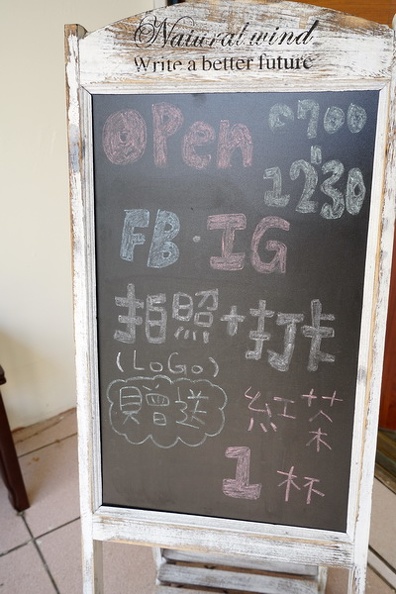 Natural wind
Write a better future
OPen 0700
~
1230
FB·IG
拍照+打卡
(LoGo)
贈送 紅茶
1杯